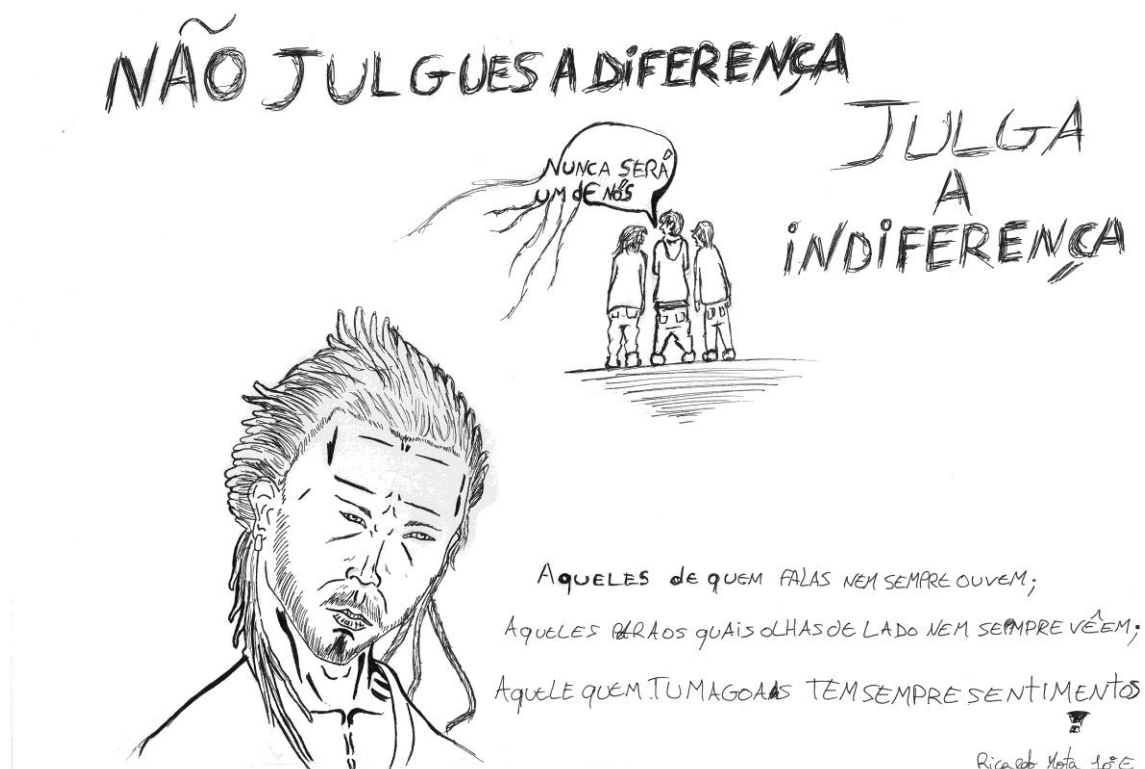 NÃO JULGUES A DIFERENÇA
JULGA
A
INDIFERENÇA
NUNCA SERÁ
UM DE NÓS
AQUELES de QUEM FALAS NEM SEMPRE OUVEM;
AQUELES PARA OS QUAIS OLHAS DE LADO NEM SEMPRE VÊEM;
AQUELE QUEM TU MAGOAS TEM SEMPRE SENTIMENTOS
!
Ricardo Mota 10º E